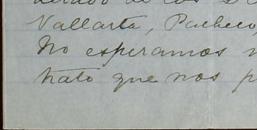 Vallarta, Pacheco,
No esperamos
trato que nos p